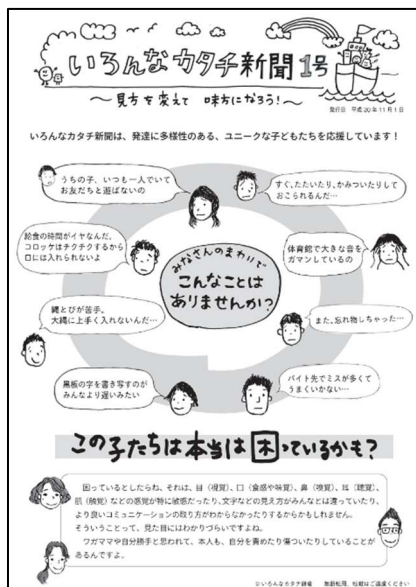 いろんなカタチ新聞 1号
〜見方を変えて 味方になろう！〜
発行日 平成20年11月1日
いろんなカタチ新聞は、発達に多様性のある、ユニークな子どもたちを応援しています！
うちの子、いつも一人でいて
お友だちと遊ばないの
すぐ、たたいたり、かみついたりして
おこられるんだ…
給食の時間がイヤなんだ、
コロッケはチクチクするから
口には入れられないよ
体育館で大きな音を
ガマンしているの
みなさんのまわりで
こんなことは
ありませんか？
縄とびが苦手。
大縄に上手く入れないんだ…
また、忘れ物しちゃった…
黒板の字を書き写すのが
みんなより遅いみたい
バイト先でミスが多くて
うまくいかない…
この子たちは本当は困っているかも？
困っているとしたらね、それは、目（視覚）、口（食感や味覚）、鼻（嗅覚）、耳（聴覚）、
肌（触覚）などの感覚が特に敏感だったり、文字などの見え方がみんなとは違っていたり、
より良いコミュニケーションの取り方がわからなかったりするからかもしれません。
そういうことって、見た目にはわかりづらいですよね。
ワガママや自分勝手と思われて、本人も、自分を責めたり傷ついたりしていることが
あるんですよ。
©いろんなカタチ研究 無断転用、転載はご遠慮ください